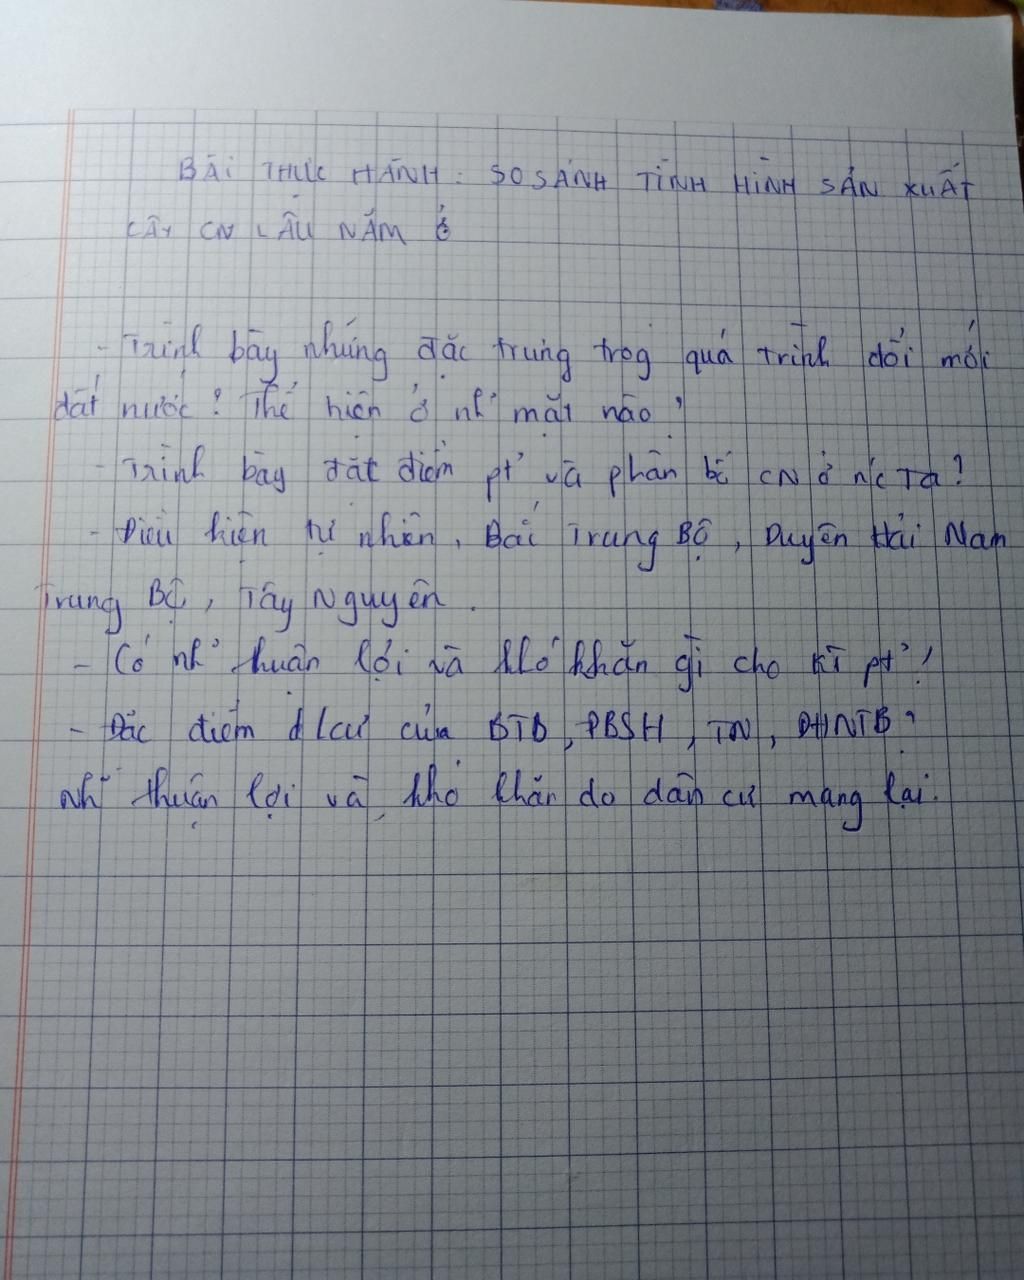 BÀI THỰC HÀNH : SO SÁNH TÌNH HÌNH SẢN XUẤT
CÂY CN LÂU NĂM Ở
- Trình bày những đặc trưng trog quá trình đổi mới
đất nước ? Thể hiện ở nh~ mặt nào ?
- Trình bày đặt điểm pt' và phân bố CN ở n'c Ta ?
- Điều kiện tự nhiên , Bắc Trung Bộ , Duyên Hải Nam
Trung Bộ , Tây Nguyên .
- Có nh~ thuận lợi và khó khăn gì cho kT pt' ?
- Đặc điểm d/cư của BTB , ĐBSH , TN , DHNTB ?
nh~ thuận lợi và khó khăn do dân cư mang lại .